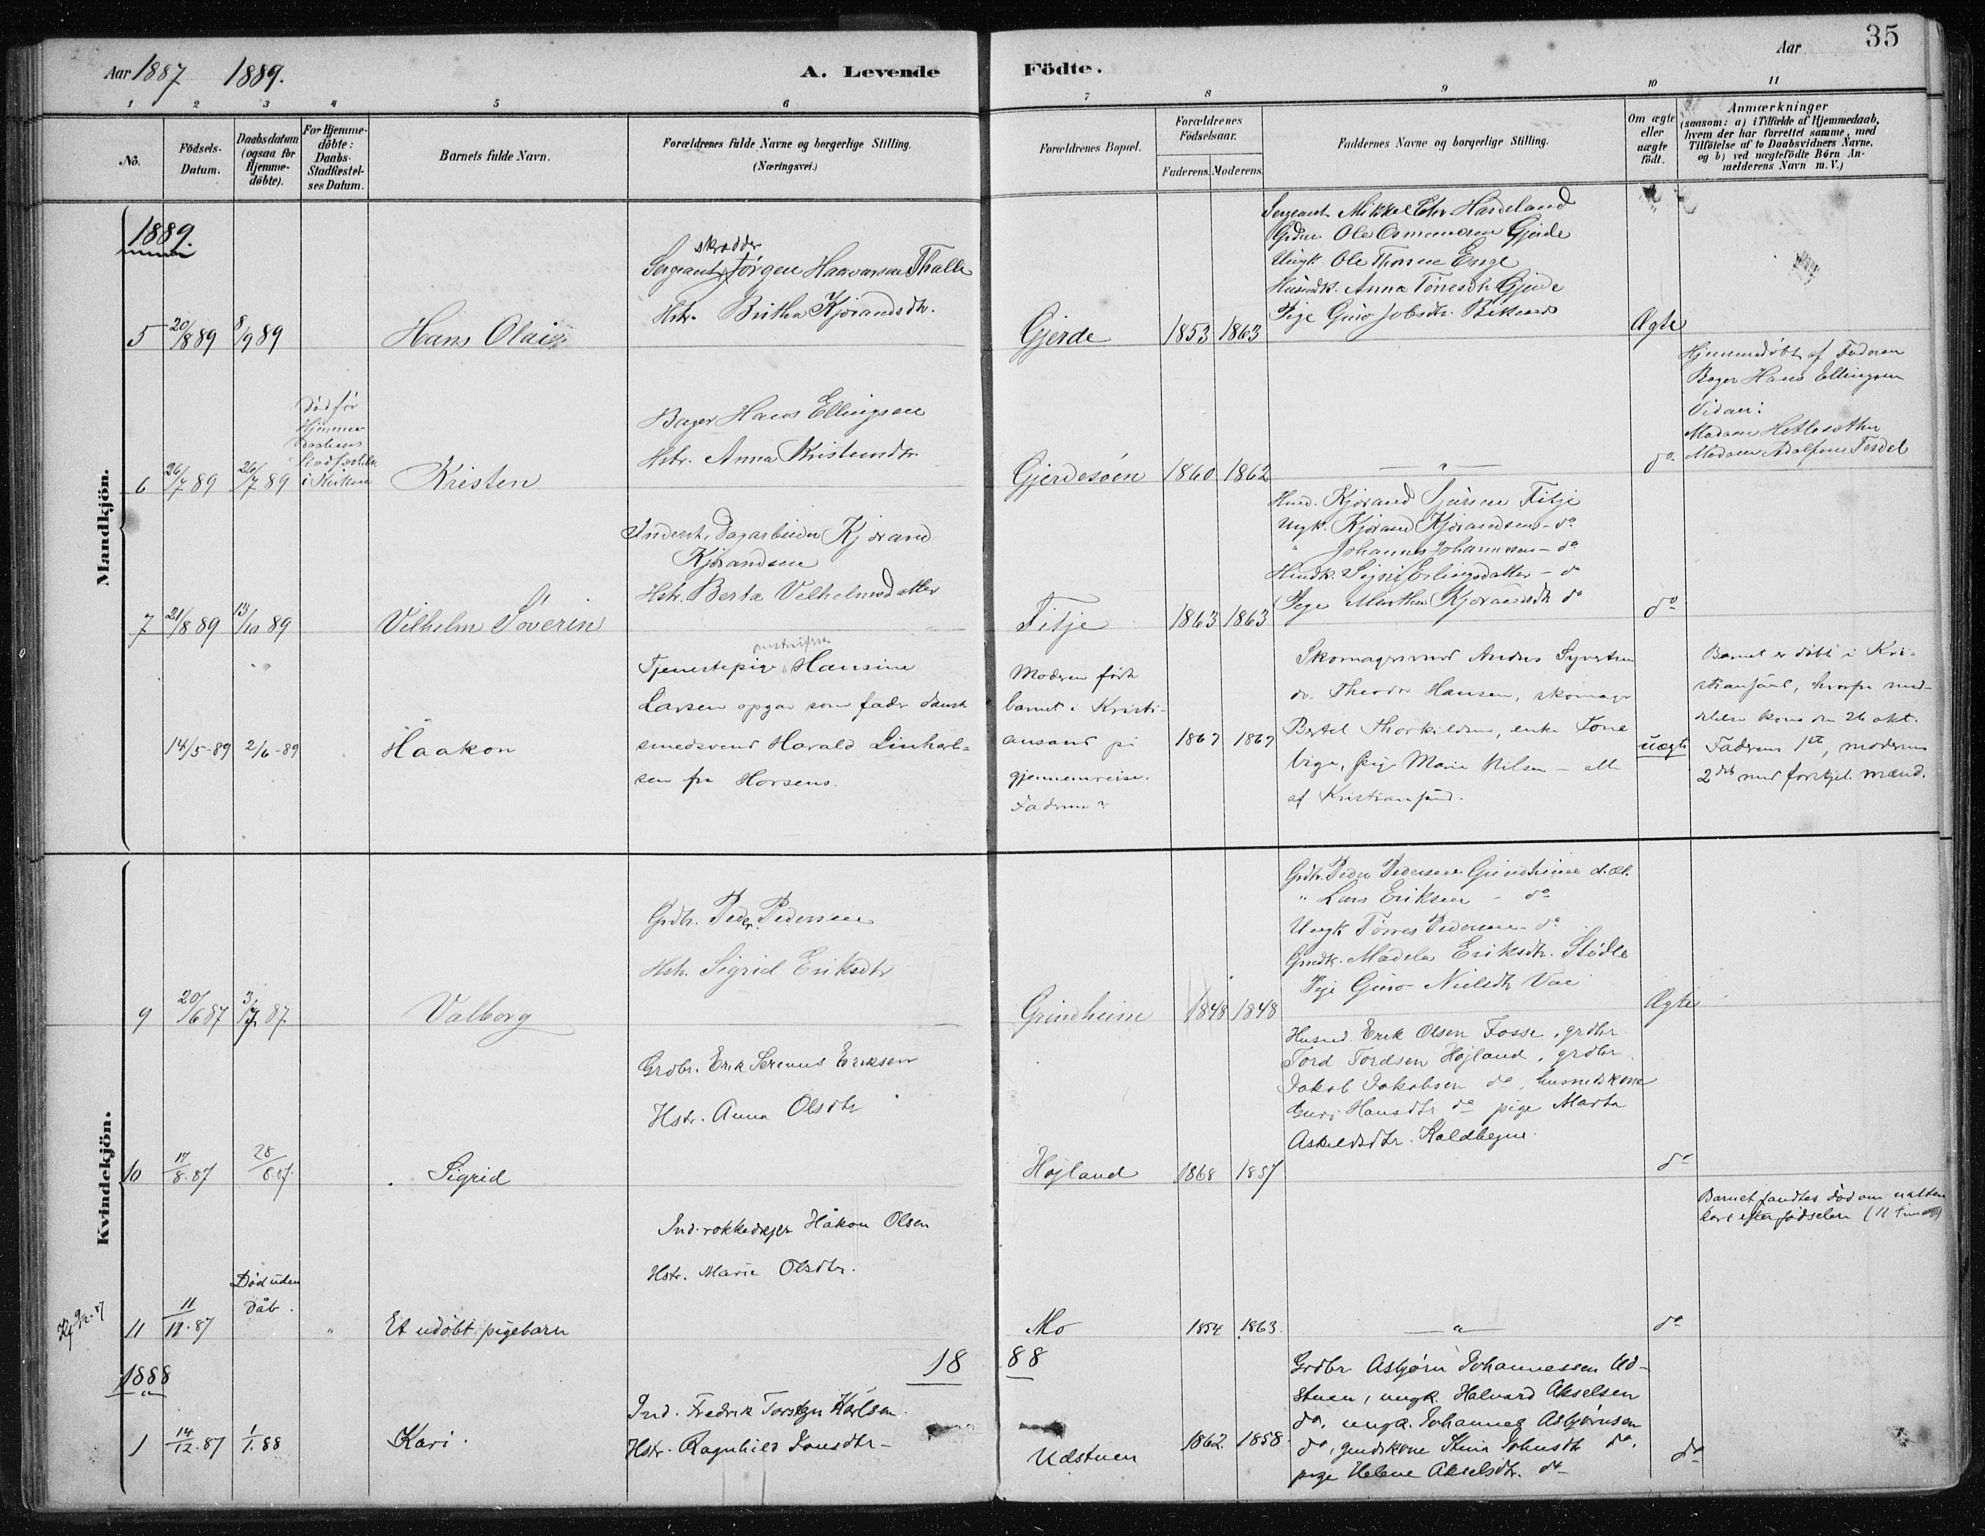 35
Aar 1887 1889.
A. Levende Födte.
Aar
1 2 3 4 5 6 7 8 9 10 11
No.
Födsels-
Datum.
Daabsdatum
(ogsaa for
Hjemme-
döbte).
For Hjemme-
döbte:
Daabs-
Stadfæstel-
ses Datum.
Barnets fulde Navn.
Forældrenes fulde Navne og borgerlige Stilling.
(Næringsvei.)
Forældrenes Bopæl.
Forældrenes
Födselsaar.
Faderens. Moderens.
Faddernes Navne og borgerlige Stilling.
Om ægte
eller
uægte
födt.
Anmærkninger
(saasom: a) i Tilfælde af Hjemmedaab,
hvem der har forrettet samme, med
Tilföielse af to Daabsvidners Navne.
og b) ved uægtefödte Börn An-
melderens Navn m. V.)
Mandkjön.
1889.
5 20/8 89 8/9 89
Hans Olai
skrædder
Sergeant Jørgen Haavorsen Thalle
Hstr. Britha Kjørandsdtr.
Gjerde
1853 1863
Sergeant Mikkel Hardeland
Ole Osmundsen Gjerde
Ungk. Ole Enge
Anna Tørresdtr Gjerde
Pige Guro Jobsdtr.
Ægte
6 26/7 89 26/7 89
Død før
Hjemme-
daabens
Stadfæstelse
i Kirken
Kristen
Bager Hans Ellingsen
Hstr. Anna Kristensdtr.
Gjerdesøen
1860 1862
— " —
do
Hjemmedøbt af Faderen
Bager Hans Ellingsen
Vidner:
Madam
Madam Adolfine Tesdal
7 21/8 89 13/10 89
Vilhelm Søverin
Inderst, Dagarbeider Kjørand
Kjørandsen
Hstr. Berta Vilhelmsdatter
Fitje
1863 1863
Husmd. Kjørand Fitje
Ungk. Kjørand Kjørandsen - do
" Johannes Johannessen - do
Husmdk. Signi Erlingsdatter - do
Pige Martha Kjørandsdtr do
do
14/5-89 2/6-89
Haakon
Tjenestepige Hansine
Larsen opgav som fader dansk
smedsvend Harald Linhart-
sen fra Horsens.
Moderen født
barnet i Kristi-
ansand på
gjennemreise.
Faderen?
1867 1867
Skomagersvend Anders Syvertsen
do. Theodor Hansen, skomager
Bertel Thorkildsen, enke Tone
Vige, pige Marie Nilsen - alle
af Kristiansand.
uægte
Barnet er døbt i Kri-
stiansand, hvorfra med-
delelse kom den 26 okt.
Faderens 1ste, moderens
2det med forskjel. mænd.
Kvindekjön.
9 20/6 87 3/7 87
Valborg
Grdbr. Peder Pedersen
Hstr. Sigrid Eriksdtr
Grindheim
1848 1848
Grdbr. Peder Pedersen Grindheim d.æl.
" Lars Eriksen - do
Ungk Tørres Pedersen - do
Grmdk. Madela Eriksdtr. Stødle
Pige Guro Nielsdtr Vae
Ægte
10 17/8.87 28/8.87
Sigrid
Grdbr. Erik Serenus Eriksen
Hstr. Anna Olsdtr
Højland
1868 1857
Husmd Erik Olsen Fosse, grdbr.
Tord Tordsen Højland, grdbr.
Jakob Jakobsen do, husmdskone
Guri Hansdtr do pige Marta
Askildsdtr.
do
11 11/11.87
Død uden
Dåb.
"
Et udøbt pigebarn
Ind. rokkedrejer Håkon Olsen
Hstr. Marie Olsdtr.
Mo
1854 1863.
— " —
do
Barnet fandtes død om natten
kort efter fødselen (11 timer)
1888
18 88
1 14/12.87 1/1.88
Kari.
Ind. Fredrik Torstejn Karlsen.
Hstr. Ragnhild Jonsdtr-
Udstuen
1862 1858.
Grdbr Asbjørn Johannessen Ud-
stuen, ungk. Halvard Akselsen
do, ungk. Johannes Asbjørnsen
do, gmdskone Stina Johnsdtr do.
pige Helene Akselsdtr. do
do